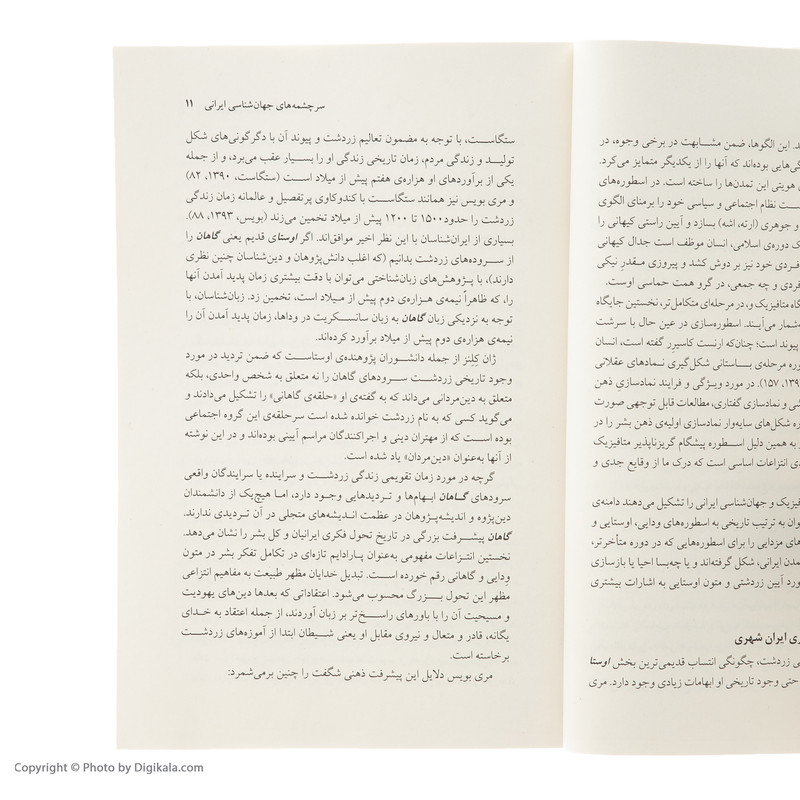 د. این الگوها، ضمن مشابهت در برخی وجوه، در
گی‌هایی بوده‌اند که آنها را از یکدیگر متمایز می‌کرد.
هویتی این تمدن‌ها را ساخته است. در اسطوره‌های
ست نظام اجتماعی و سیاسی خود را برمنای الگوی
و جوهری (ارته، اشه) بسازد و آیین راستی کیهانی را
ک دوره‌ی اسلامی، انسان موظف است جدال کیهانی
فردی خود نیز بر دوش کشد و پیروزی مقدرِ نیکی
فردی و چه جمعی، در گرو همت حماسی اوست.
گاه متافیزیک و، در مرحله‌ای متکامل‌تر، نخستین جایگاه
شمار می‌آیند. اسطوره‌سازی در عین حال با سرشت
پیوند است؛ چنان‌که ارنست کاسیرر گفته است، انسان
وره مرحله‌ی باستانی شکل‌گیری نمادهای عقلانی
۱۵۷). در مورد ویژگی و فرایند نمادسازیِ ذهن
شی و نمادسازی گفتاری، مطالعات قابل توجهی صورت
ره شکل‌های سایه‌وار نمادسازی اولیه‌ی ذهن بشر را در
و به همین دلیل اسطوره پیشگام گریزناپذیر متافیزیک
دی انتزاعات اساسی است که درک ما از وقایع جدی و
فیزیک و جهان‌شناسی ایرانی را تشکیل می‌دهند دامنه‌ی
وان به ترتیب تاریخی به اسطوره‌های ودایی، اوستایی و
های مزدایی را برای اسطوره‌هایی که در دوره متأخرتر،
مدن ایرانی، شکل گرفته‌اند و یا چه‌بسا احیا یا بازسازی
ورد آیین زردشتی و متون اوستایی به اشارات بیشتری
ری ایران شهری
ی زردشت، چگونگی انتساب قدیمی‌ترین بخش اوستا
حتی وجود تاریخی او ابهامات زیادی وجود دارد. مری
سرچشمه‌های جهان‌شناسی ایرانی ۱۱
ستگاست، با توجه به مضمون تعالیم زردشت و پیوند آن با دگرگونی‌های شکل
تولید و زندگی مردم، زمان تاریخی زندگی او را بسیار عقب می‌برد، و از جمله
یکی از برآوردهای او هزاره‌ی هفتم پیش از میلاد است (ستگاست، ۱۳۹۰، ۸۲)
و مری بویس نیز همانند ستگاست با کندوکاوی پرتفصیل و عالمانه زمان زندگی
زردشت را حدود ۱۵۰۰ تا ۱۲۰۰ پیش از میلاد تخمین می‌زند (بویس، ۱۳۹۳، ۸۸).
بسیاری از ایران‌شناسان با این نظر اخیر موافق‌اند. اگر اوستای قدیم یعنی گاهان را
از سروده‌های زردشت بدانیم (که اغلب دانش‌پژوهان و دین‌شناسان چنین نظری
دارند)، با پژوهش‌های زبان‌شناختی می‌توان با دقت بیشتری زمان پدید آمدن آنها
را، که ظاهراً نیمه‌ی هزاره‌ی دوم پیش از میلاد است، تخمین زد. زبان‌شناسان، با
توجه به نزدیکی زبان گاهان به زبان سانسکریت در وداها، زمان پدید آمدن آن را
نیمه‌ی هزاره‌ی دوم پیش از میلاد برآورد کرده‌اند.
ژان کِلِنز از جمله دانشوران پژوهنده‌ی اوستاست که ضمن تردید در مورد
وجود تاریخی زردشت سرودهای گاهان را نه متعلق به شخص واحدی، بلکه
متعلق به دین‌مردانی می‌داند که به گفته‌ی او «حلقه‌ی گاهانی» را تشکیل می‌دادند و
می‌گوید کسی که به نام زردشت خوانده شده است سرحلقه‌ی این گروه اجتماعی
بوده است که از مهتران دینی و اجراکنندگان مراسم آیینی بوده‌اند و در این نوشته
از آنها به‌عنوان «دین‌مردان» یاد شده است.
گرچه در مورد زمان تقویمی زندگی زردشت و سراینده یا سرایندگان واقعی
سرودهای گاهان ابهام‌ها و تردیدهایی وجود دارد، اما هیچ‌یک از دانشمندان
دین‌پژوه و اندیشه‌پژوهان در عظمت اندیشه‌های متجلی در آن تردیدی ندارند.
گاهان پیشرفت بزرگی در تاریخ تحول فکری ایرانیان و کل بشر را نشان می‌دهد.
نخستین انتزاعات مفهومی به‌عنوان پارادایم تازه‌ای در تکامل تفکر بشر در متون
ودایی و گاهانی رقم خورده است. تبدیل خدایان مظهر طبیعت به مفاهیم انتزاعی
مظهر این تحول بزرگ محسوب می‌شود. اعتقاداتی که بعدها دین‌های یهودیت
و مسیحیت آن را با باورهای راسخ‌تر بر زبان آوردند، از جمله اعتقاد به خدای
یگانه، قادر و متعال و نیروی مقابل او یعنی شیطان ابتدا از آموزه‌های زردشت
برخاسته است.
مری بویس دلایل این پیشرفت ذهنی شگفت را چنین برمی‌شمرد:
Copyright © Photo by Digikala.com